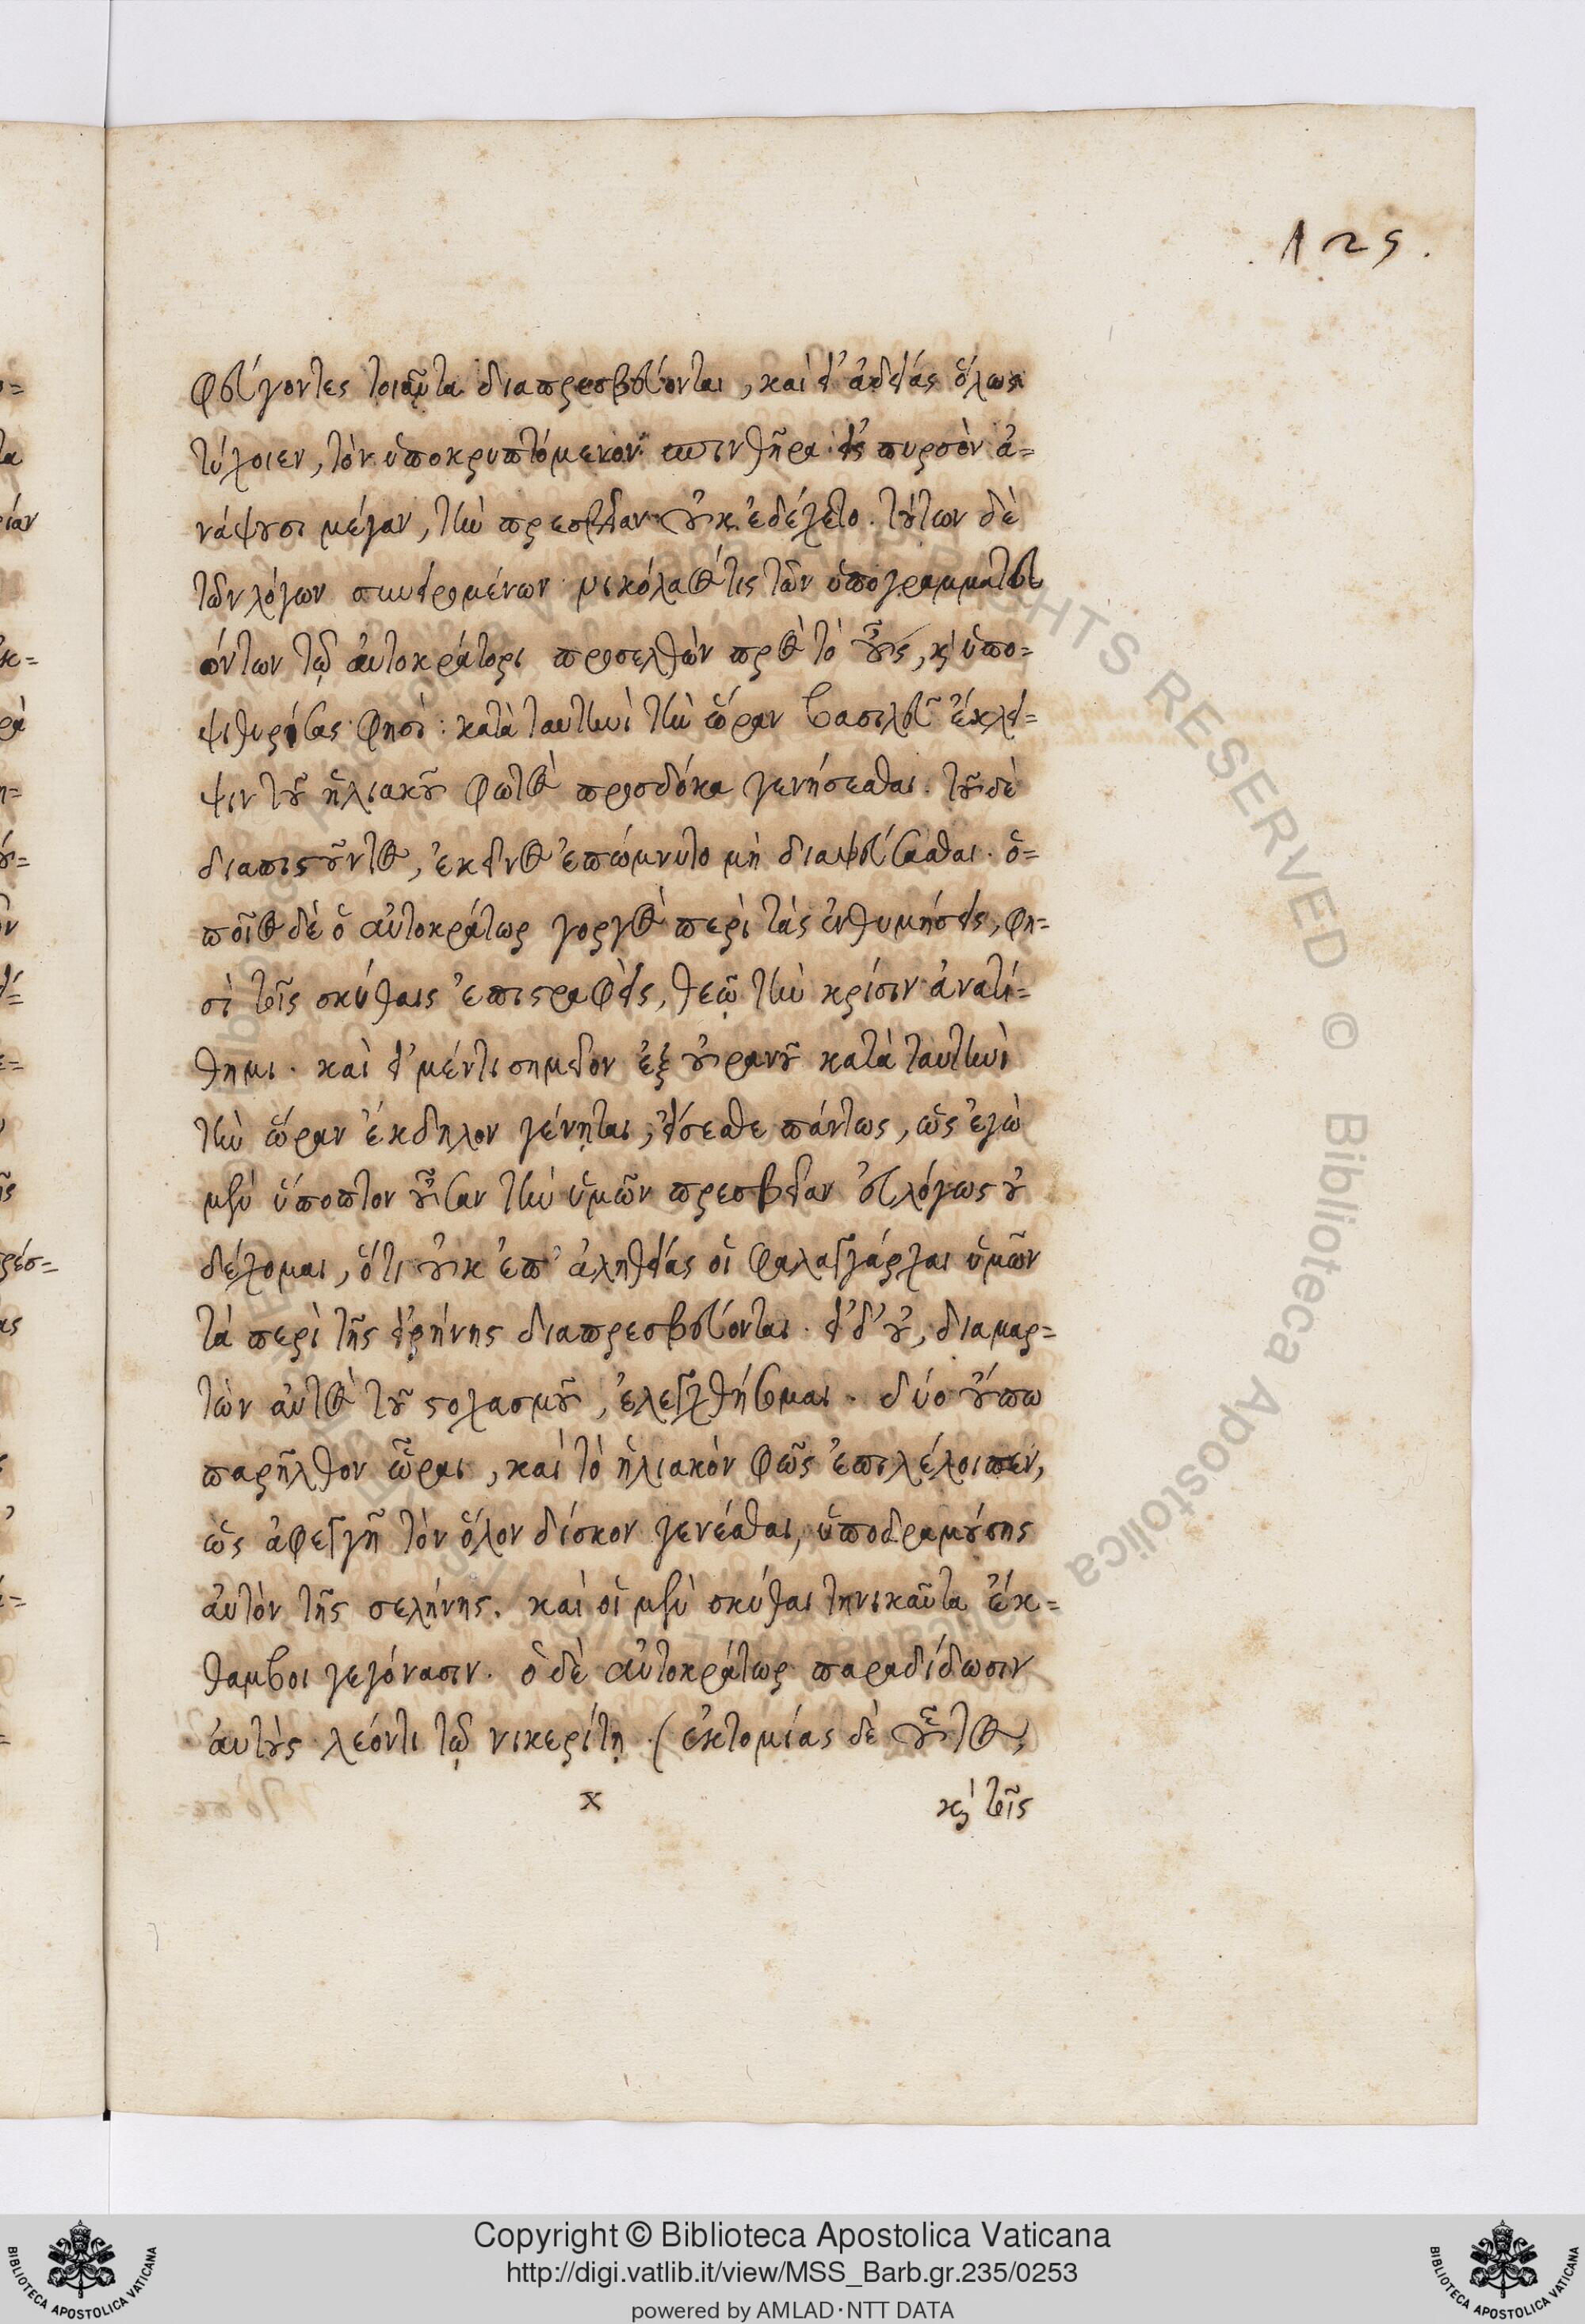 125.
φεύγοντες τοιαῦτα διαπρεσβεύονται, καὶ εἰ ἀδείας ὅλως
τύχοιεν, τὸν ὑποκρυπτόμενον σπινθῆρα εἰς πυρσὸν ἀ=
νάψουσι μέγαν, τὴν πρεσβείαν οὐκ ἐδέχετο. τούτων δὲ
τῶν λόγων συνειρομένων νικόλαός τις τῶν ὑπογραμματευ
όντων τῷ αὐτοκράτορι προσελθὼν πρὸς τὸ οὖς, κỳ ὑπο=
ψιθυρίσας φησὶ: κατὰ ταυτηνὶ τὴν ὥραν βασιλεῦ ἔκλει=
ψιν τοῦ ἡλιακοῦ φωτὸς προσδόκα γενήσεσθαι. τοῦ δὲ
διαπιστοῦντος, ἐκεῖνος ἐπώμνυτο μὴ διαψεύσασθαι. ὁ=
ποῖος δὲ ὁ αὐτοκράτωρ γοργὸς περὶ τὰς ἐνθυμήσεις, φη=
σὶ τοῖς σκύθαις ἐπιστραφεὶς, θεῷ τὴν κρίσιν ἀνατί=
θημι. καὶ εἰ μέντι σημεῖον ἐξ οὐρανοῦ κατὰ ταυτηνὶ
τὴν ὥραν ἔκδηλον γένηται, εἴσεσθε πάντως, ὡς ἐγὼ
μὲν ὕποπτον οὖσαν τὴν ὑμῶν πρεσβείαν εὐλόγως οὐ
δέχομαι, ὅτι οὐκ ἐπ' ἀληθείας οἱ φαλαγγάρχαι ὑμῶν
τὰ περὶ τῆς εἰρήνης διαπρεσβεύονται. εἰ δ' οὐ, διαμαρ=
τὼν αὐτὸς τοῦ στοχασμοῦ, ἐλεγχθήσομαι. δύο οὔπω
παρῆλθον ὧραι, καὶ τὸ ἡλιακὸν φῶς ἐπιλέλοιπεν,
ὡς ἀφεγγῆ τὸν ὅλον δίσκον γενέσθαι, ὑποδραμούσης
αὐτὸν τῆς σελήνης. καὶ οἱ μὲν σκύθαι τηνικαῦτα ἔκ=
θαμβοι γεγόνασιν. ὁ δὲ αὐτοκράτωρ παραδίδωσιν
αὐτοὺς λέοντι τῷ νικερίτῃ (ἐκτομίας δὲ οὗτος,
x
κỳ τοῖς
Copyright © Biblioteca Apostolica Vaticana
http://digi.vatlib.it/view/MSS_Barb.gr.235/0253
powered by AMLAD·NTT DATA